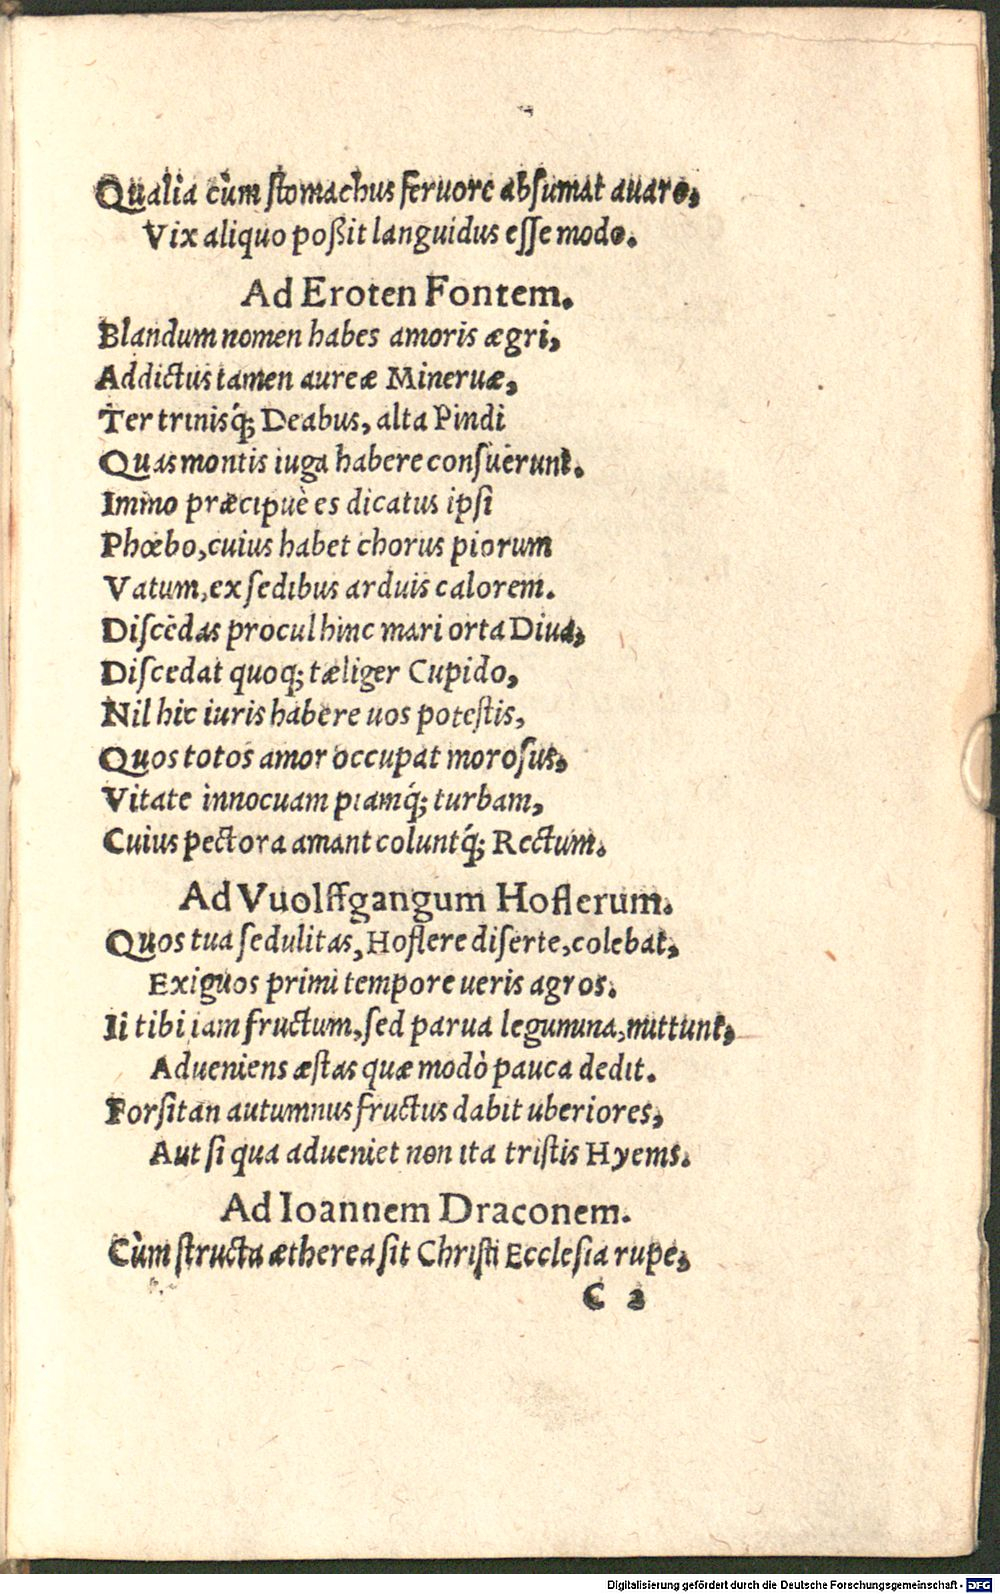 Qualia cùm ſtomachus feruore abſumat auaro,
Vix aliquo poßit languidus eſſe modo.
Ad Eroten Fontem.
Blandum nomen habes amoris ægri,
Addictus tamen aureæ Mineruæ,
Ter trinisq́; Deabus, alta Pindi
Quas montis iuga habere conſuerunt.
Immo præcipuè es dicatus ipſi
Phœbo, cuius habet chorus piorum
Vatum, ex ſedibus arduis calorem.
Diſcedas procul hinc mari orta Diua,
Diſcedat quoq; tæliger Cupido,
Nil hic iuris habere uos poteſtis,
Quos totos amor occupat moroſus,
Vitate innocuam piamq́; turbam,
Cuius pectora amant coluntq́; Rectum.
Ad Vuolffgangum Hoflerum.
Quos tua ſedulitas, Hoflere diſerte, colebat,
Exiguos primi tempore ueris agros.
Ii tibi iam fructum, ſed parua legumina, mittunt,
Adueniens æſtas quæ modò pauca dedit.
Forſitan autumnus fructus dabit uberiores,
Aut ſi qua adueniet non ita triſtis Hyems.
Ad Ioannem Draconem.
Cùm ſtructa ætherea ſit Chriſti Eccleſia rupe,
C 2
Digitalisierung gefördert durch die Deutsche Forschungsgemeinschaft - DFG